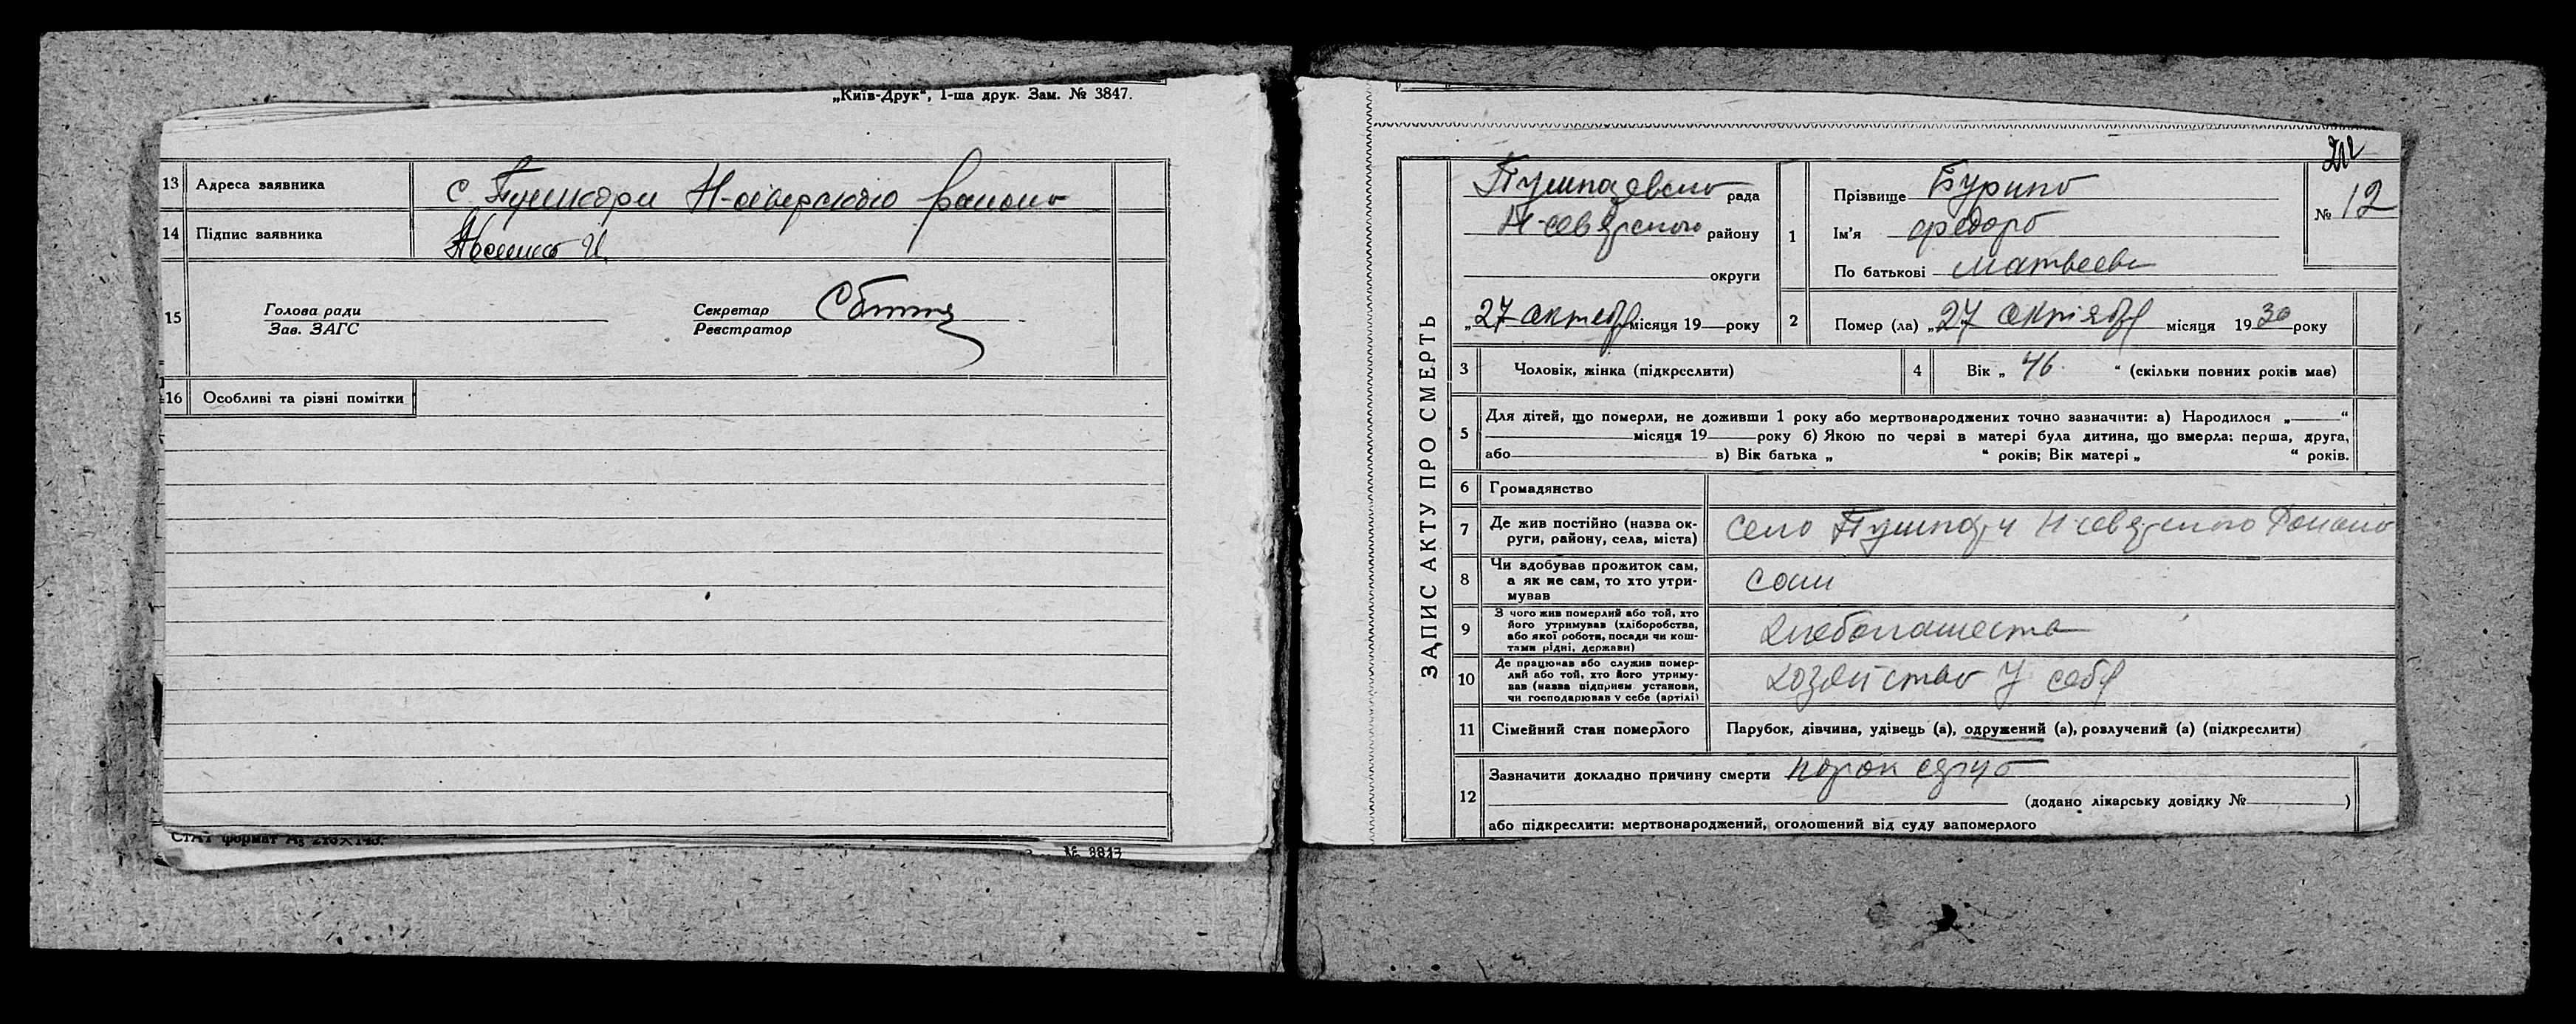 „Київ-Друк“, 1-ша друк. Зам. № 3847.
13 Адреса заявника с. Пушкари Н-северского района
14 Підпис заявника
15 Голова ради
Зав. ЗАГС
Секретар
Реєстратор
16 Особливі та різні помітки
СТАТ формат А5 210×143.
№ 3847
ЗАПИС АКТУ ПРО СМЕРТЬ
рада
Н-северского району
округи
„27 октебря місяця 19 року
1 Прізвище
Ім'я Федор
По батькові Матвееви
№ 12
2 Помер (ла) „27 октября місяця 1930 року
3 Чоловік, жінка (підкреслити)
4 Вік „ 46 “ (скільки повних років мав)
5 Для дітей, що померли, не доживши 1 року або мертвонароджених точно зазначити: а) Народилося „ “
місяця 19 року б) Якою по черзі в матері була дитина, що вмерла: перша, друга,
або в) Вік батька „ “ років; Вік матері „ “ років.
6 Громадянство
7 Де жив постійно (назва ок-
руги, району, села, міста) село Пушкари Н-северского Районо
8 Чи здобував прожиток сам,
а як не сам, то хто утри-
мував сам
9 З чого жив померлий або той, хто
його утримував (хліборобства,
або якої роботи, посади чи кош-
тами рідні, держави)
10 Де працював або служив помер-
лий або той, хто його утриму-
вав (назва підприєм установи,
чи господарював у себе (артілі) хозяйство у себя
11 Сімейний стан померлого Парубок, дівчина, удівець (а), одружений (а), розлучений (а) (підкреслити)
12 Зазначити докладно причину смерти порок
(додано лікарську довідку № )
або підкреслити: мертвонароджений, оголошений від суду запомерлого